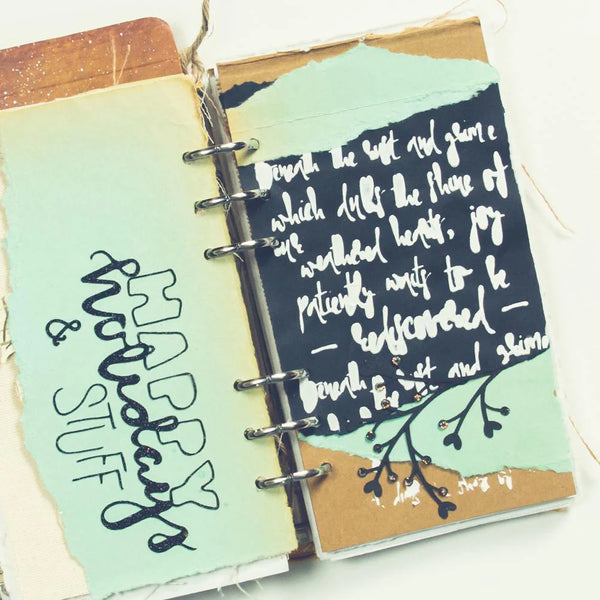 HAPPY
holidays
&
STUFF
Beneath the rust and grime
which dulls the shine of
our weathered hearts, joy
patiently waits to be
— rediscovered —
Beneath the rust and grime